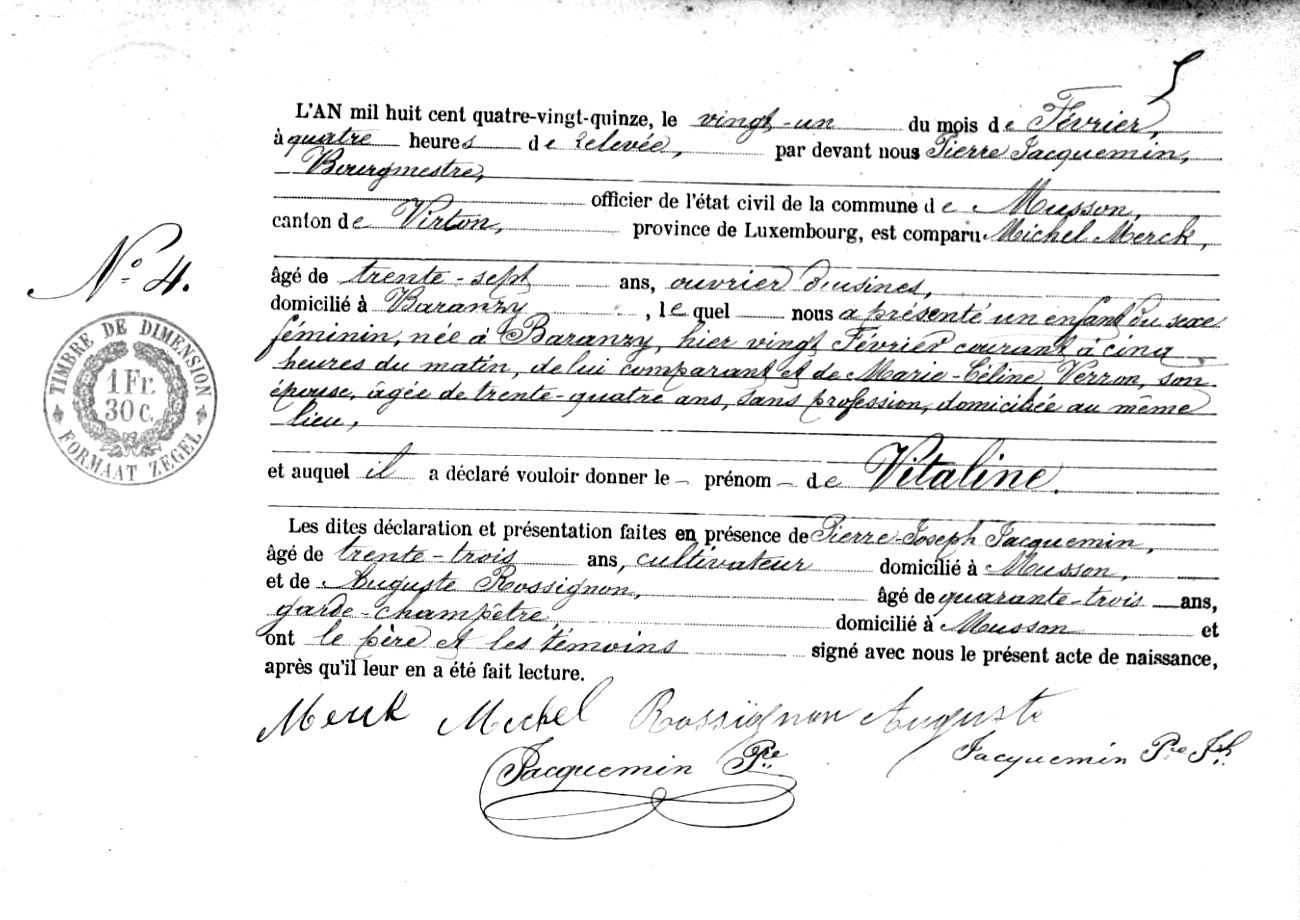 5
L'AN mil huit cent quatre-vingt-quinze, le vingt-un du mois de Février,
à quatre heures de relevée, par devant nous Pierre Jacquemin,
Bourgmestre,
officier de l'état civil de la commune de Musson,
canton de Virton, province de Luxembourg, est comparu Michel Merck,
N° 4.
âgé de trente-sept ans, ouvrier d'usines,
domicilié à Baranzy, lequel nous a présenté un enfant du sexe
féminin, née à Baranzy, hier vingt Février courant à cinq
heures du matin, de lui comparant et de Marie-Céline Verron, son
épouse, âgée de trente-quatre ans, sans profession, domiciliée au même
lieu,
TIMBRE DE DIMENSION
1 Fr.
30 C.
FORMAAT ZEGEL
et auquel il a déclaré vouloir donner le - prénom - de Vitaline.
Les dites déclaration et présentation faites en présence de Pierre-Joseph Jacquemin,
âgé de trente-trois ans, cultivateur domicilié à Musson,
et de Auguste Rossignon, âgé de quarante-trois ans,
garde-champêtre, domicilié à Musson et
ont le père et les témoins signé avec nous le présent acte de naissance,
après qu'il leur en a été fait lecture.
Merck Michel Rossignon Auguste
Jacquemin Pre Jacquemin Pre Jh